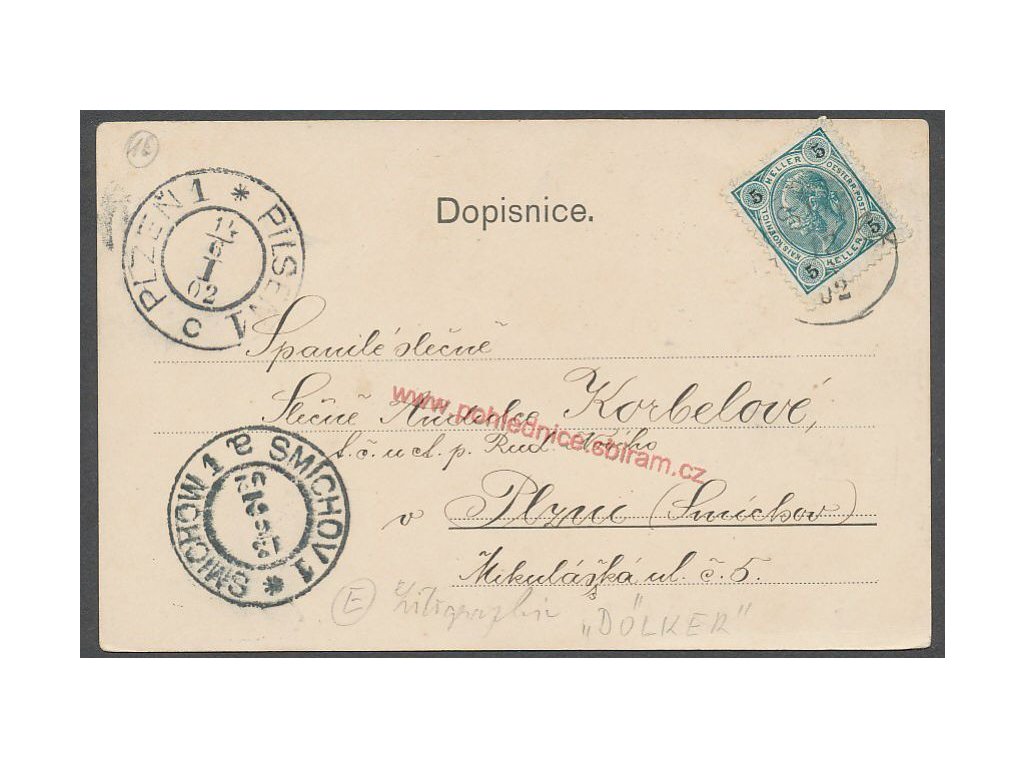 16
PLZEŇ 1 * PILSEN 1 c
6
I
02
Dopisnice.
5 HELLER 5
OESTERR. POST
5 HELLER 5
02
Spanilé slečně
Slečně Korbelové,
t. č. u ct. p. Rud.
v Plzni (Smíchov)
Mikulášská ul. č. 5.
www.pohlednice.sbiram.cz
SMÍCHOV 1 * SMICHOW 1 a
E Litographie „DÖLKER"